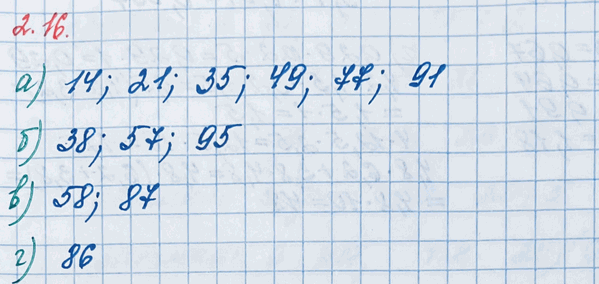 2.16.
а) 14; 21; 35; 49; 77; 91
б) 38; 57; 95
в) 58; 87
г) 86